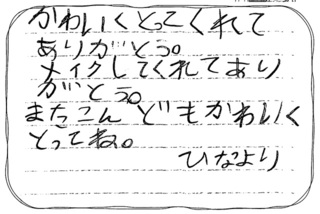 かわいくとってくれて
ありがとう。
メイクしてくれてあり
がとう。
またこんどもかわいく
とってね。
ひなより